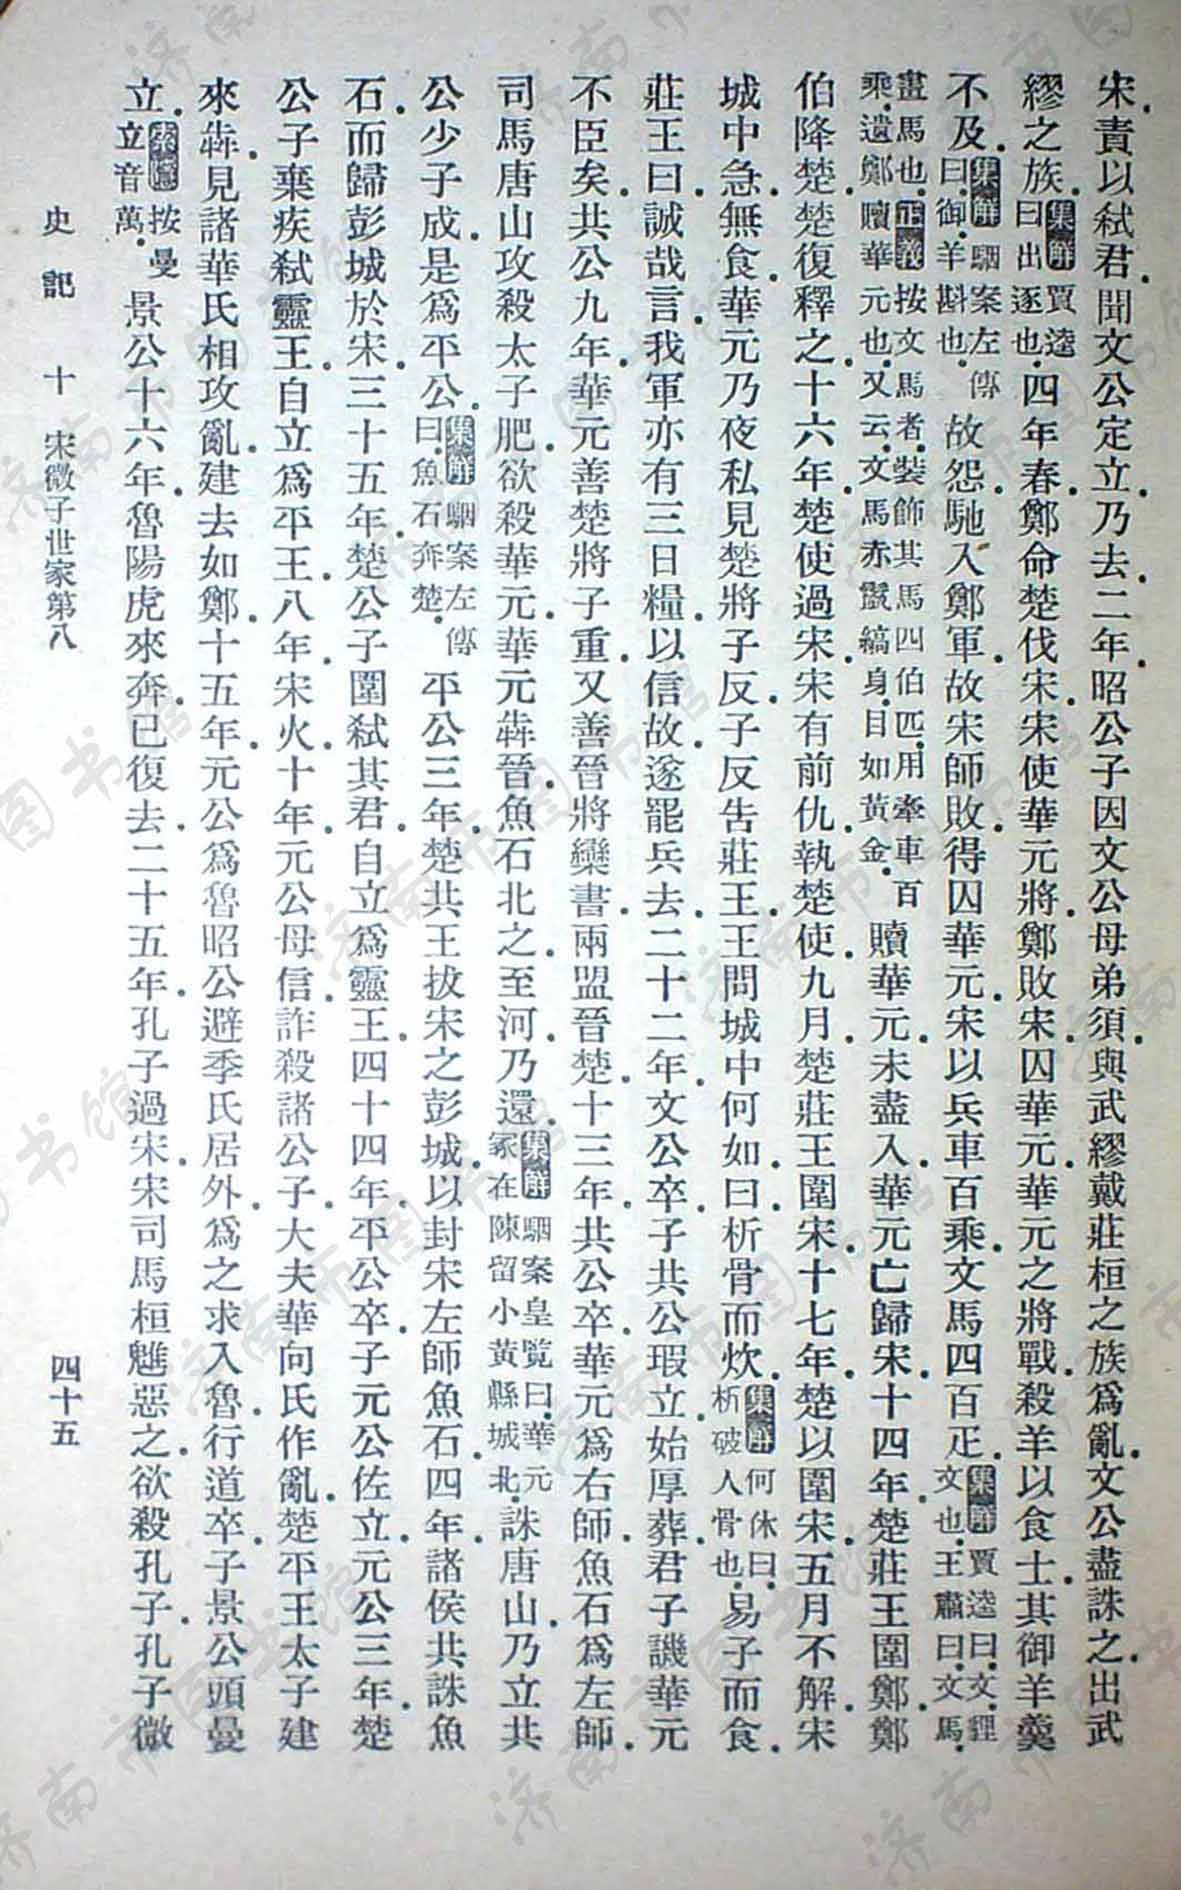 宋．責以弒君．聞文公定立．乃去．二年．昭公子因文公母弟須與武繆戴莊桓之族爲亂．文公盡誅之．出武
繆之族．集解賈逵曰出逐也．四年春．鄭命楚伐宋．宋使華元將．鄭敗宋．囚華元．華元之將戰．殺羊以食士．其御羊羹
不及．集解駰案左傳曰．御．羊斟也．故怨．馳入鄭軍．故宋師敗．得囚華元．宋以兵車百乘．文馬四百疋．集解賈逵曰．文．貍文也．王肅曰．文馬．
畫馬也．正義按文馬者．裝飾其馬四伯匹．用牽車百乘．遺鄭贖華元也．又云．文馬赤鬣縞身．目如黃金．贖華元．未盡入．華元亡歸宋．十四年．楚莊王圍鄭．鄭
伯降楚．楚復釋之．十六年．楚使過宋．宋有前仇．執楚使．九月．楚莊王圍宋．十七年．楚以圍宋五月不解．宋
城中急．無食．華元乃夜私見楚將子反．子反告莊王．王問城中何如．曰．析骨而炊．集解何休曰．析破人骨也．易子而食．
莊王曰．誠哉言．我軍亦有三日糧．以信故．遂罷兵去．二十二年．文公卒．子共公瑕立．始厚葬．君子譏華元
不臣矣．共公九年．華元善楚將子重．又善晉將欒書．兩盟晉楚．十三年．共公卒．華元爲右師．魚石爲左師．
司馬唐山攻殺太子肥．欲殺華元．華元犇晉．魚石北之．至河．乃還．集解駰案皇覽曰．華元冢在陳留小黃縣城北．誅唐山．乃立共
公少子成．是爲平公．集解駰案左傳曰．魚石奔楚．平公三年．楚共王拔宋之彭城．以封宋左師魚石．四年．諸侯共誅魚
石．而歸彭城於宋．三十五年．楚公子圍弒其君．自立爲靈王．四十四年．平公卒．子元公佐立．元公三年．楚
公子棄疾弒靈王．自立爲平王．八年．宋火．十年．元公母信．詐殺諸公子．大夫華向氏作亂．楚平王太子建
來犇．見諸華氏相攻亂．建去如鄭．十五年．元公爲魯昭公避季氏居外．爲之求入魯．行道卒．子景公頭曼
立．索隱按．曼立音萬．景公十六年．魯陽虎來奔．已復去．二十五年．孔子過宋．宋司馬桓魋惡之．欲殺孔子．孔子微
史記　十　宋微子世家第八　四十五
济南市图书馆